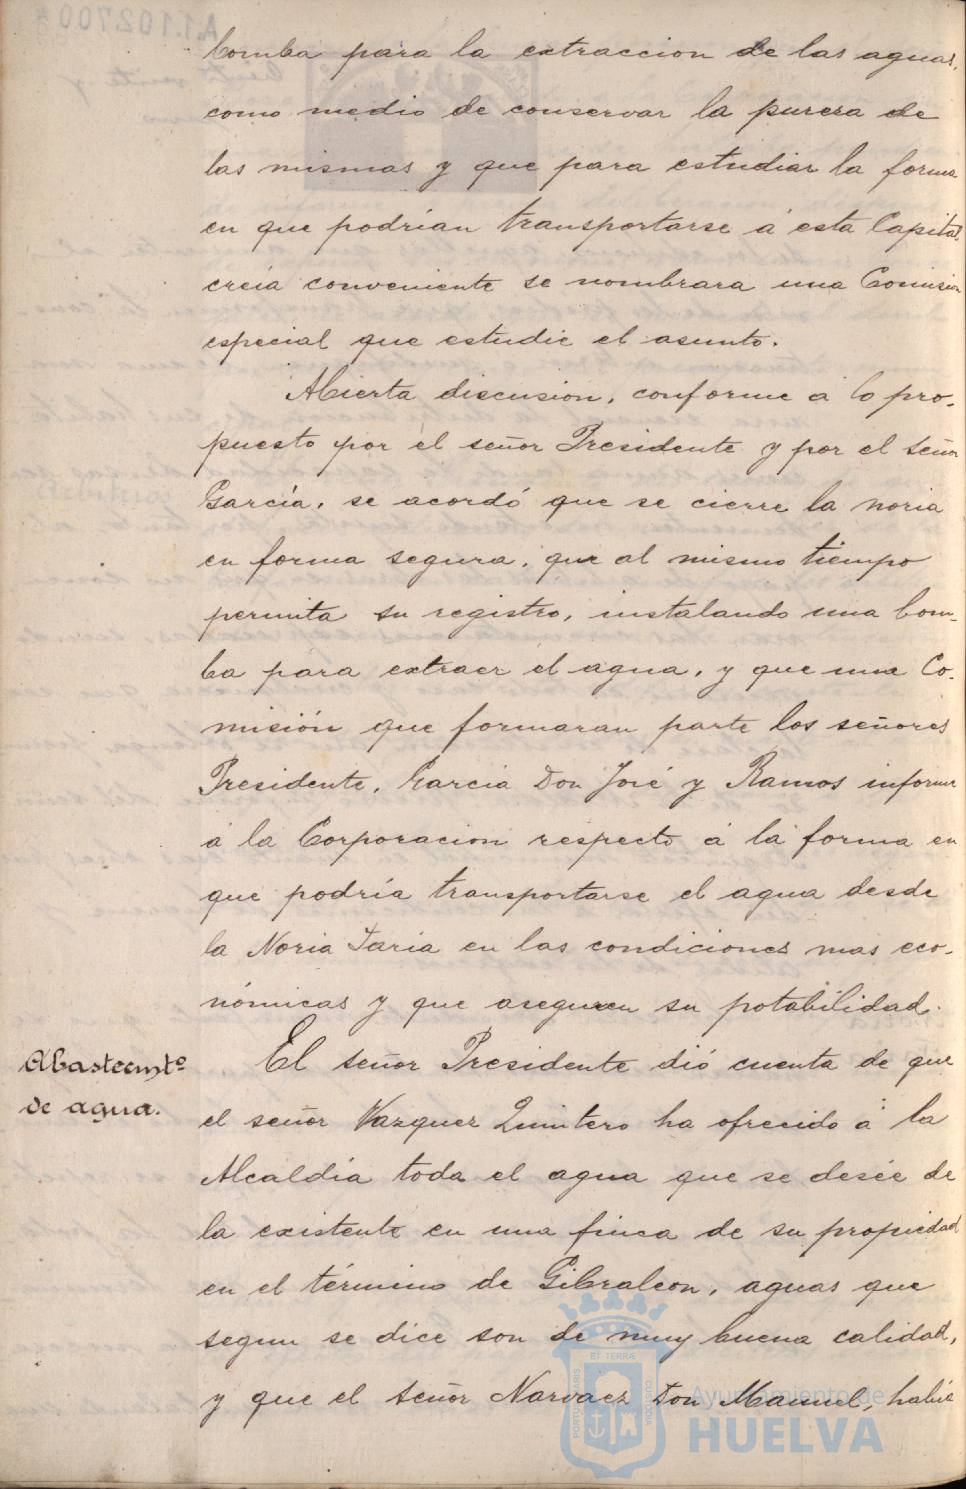 bomba para la extraccion de las aguas,
como medio de conservar la pureza de
las mismas y que para estudiar la forma
en que podrían transportarse á esta Capital
creía conveniente se nombrara una Comision
especial que estudie el asunto.
Abierta discusion, conforme á lo pro-
puesto por el señor Presidente y por el señor
García, se acordó que se cierre la noria
en forma segura, que al mismo tiempo
permita su registro, instalando una bom-
ba para extraer el agua, y que una Co-
misión que formaran parte los señores
Presidente, García Don José y Ramos informe
á la Corporacion respecto á la forma en
que podría transportarse el agua desde
la Noria Taria en las condiciones mas eco-
nómicas y que aseguren su potabilidad.
Abastecmtº
de agua.
El señor Presidente dió cuenta de que
el señor Vazquez Quintero ha ofrecido á la
Alcaldía toda el agua que se desée de
la existente en una finca de su propiedad
en el término de Gibraleon, aguas que
segun se dice son de muy buena calidad,
y que el señor Narvaez Don Manuel, había
Ayuntamiento de
HUELVA